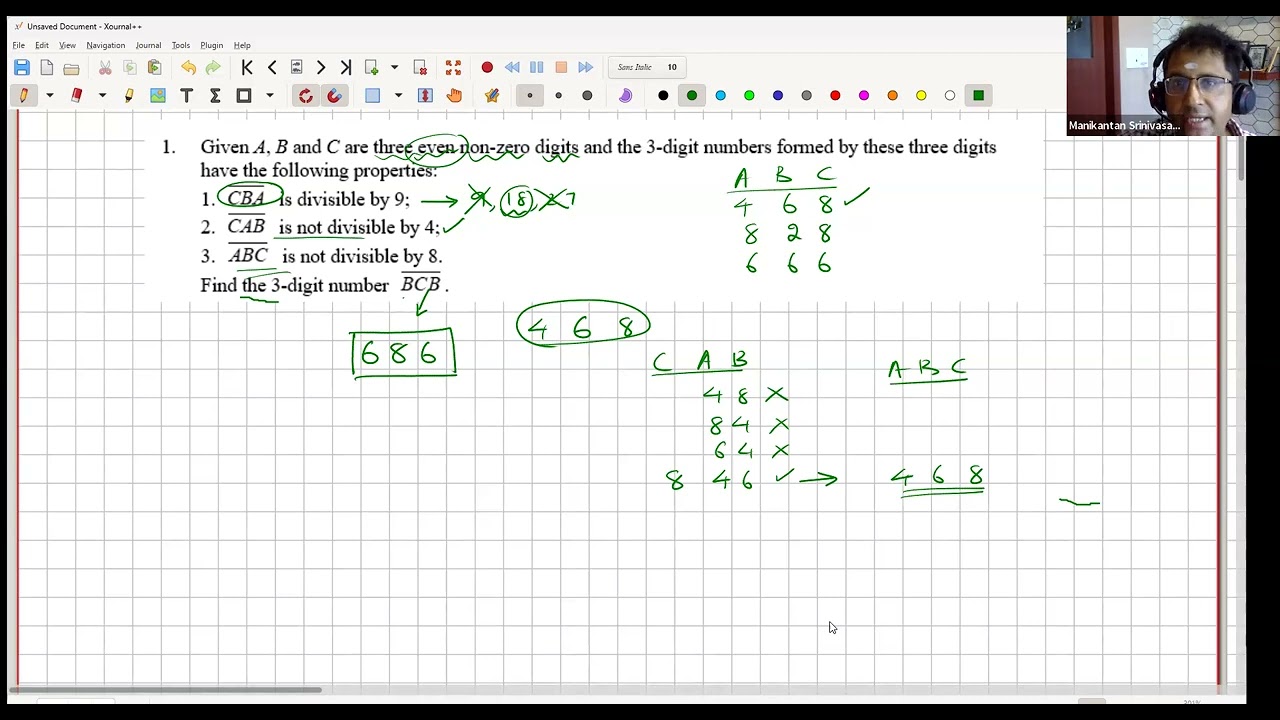 Unsaved Document - Xournal++
File Edit View Navigation Journal Tools Plugin Help
Sans Italic 10
Manikantan Srinivasa...
1. Given A, B and C are three even non-zero digits and the 3-digit numbers formed by these three digits
have the following properties:
1. CBA is divisible by 9; → 9, 18, 27
2. CAB is not divisible by 4; ✓
3. ABC is not divisible by 8.
Find the 3-digit number BCB.
A B C
4 6 8 ✓
8 2 8
6 6 6
686
4 6 8
C A B
4 8 ×
8 4 ×
6 4 ×
8 4 6 ✓ →
A B C
4 6 8